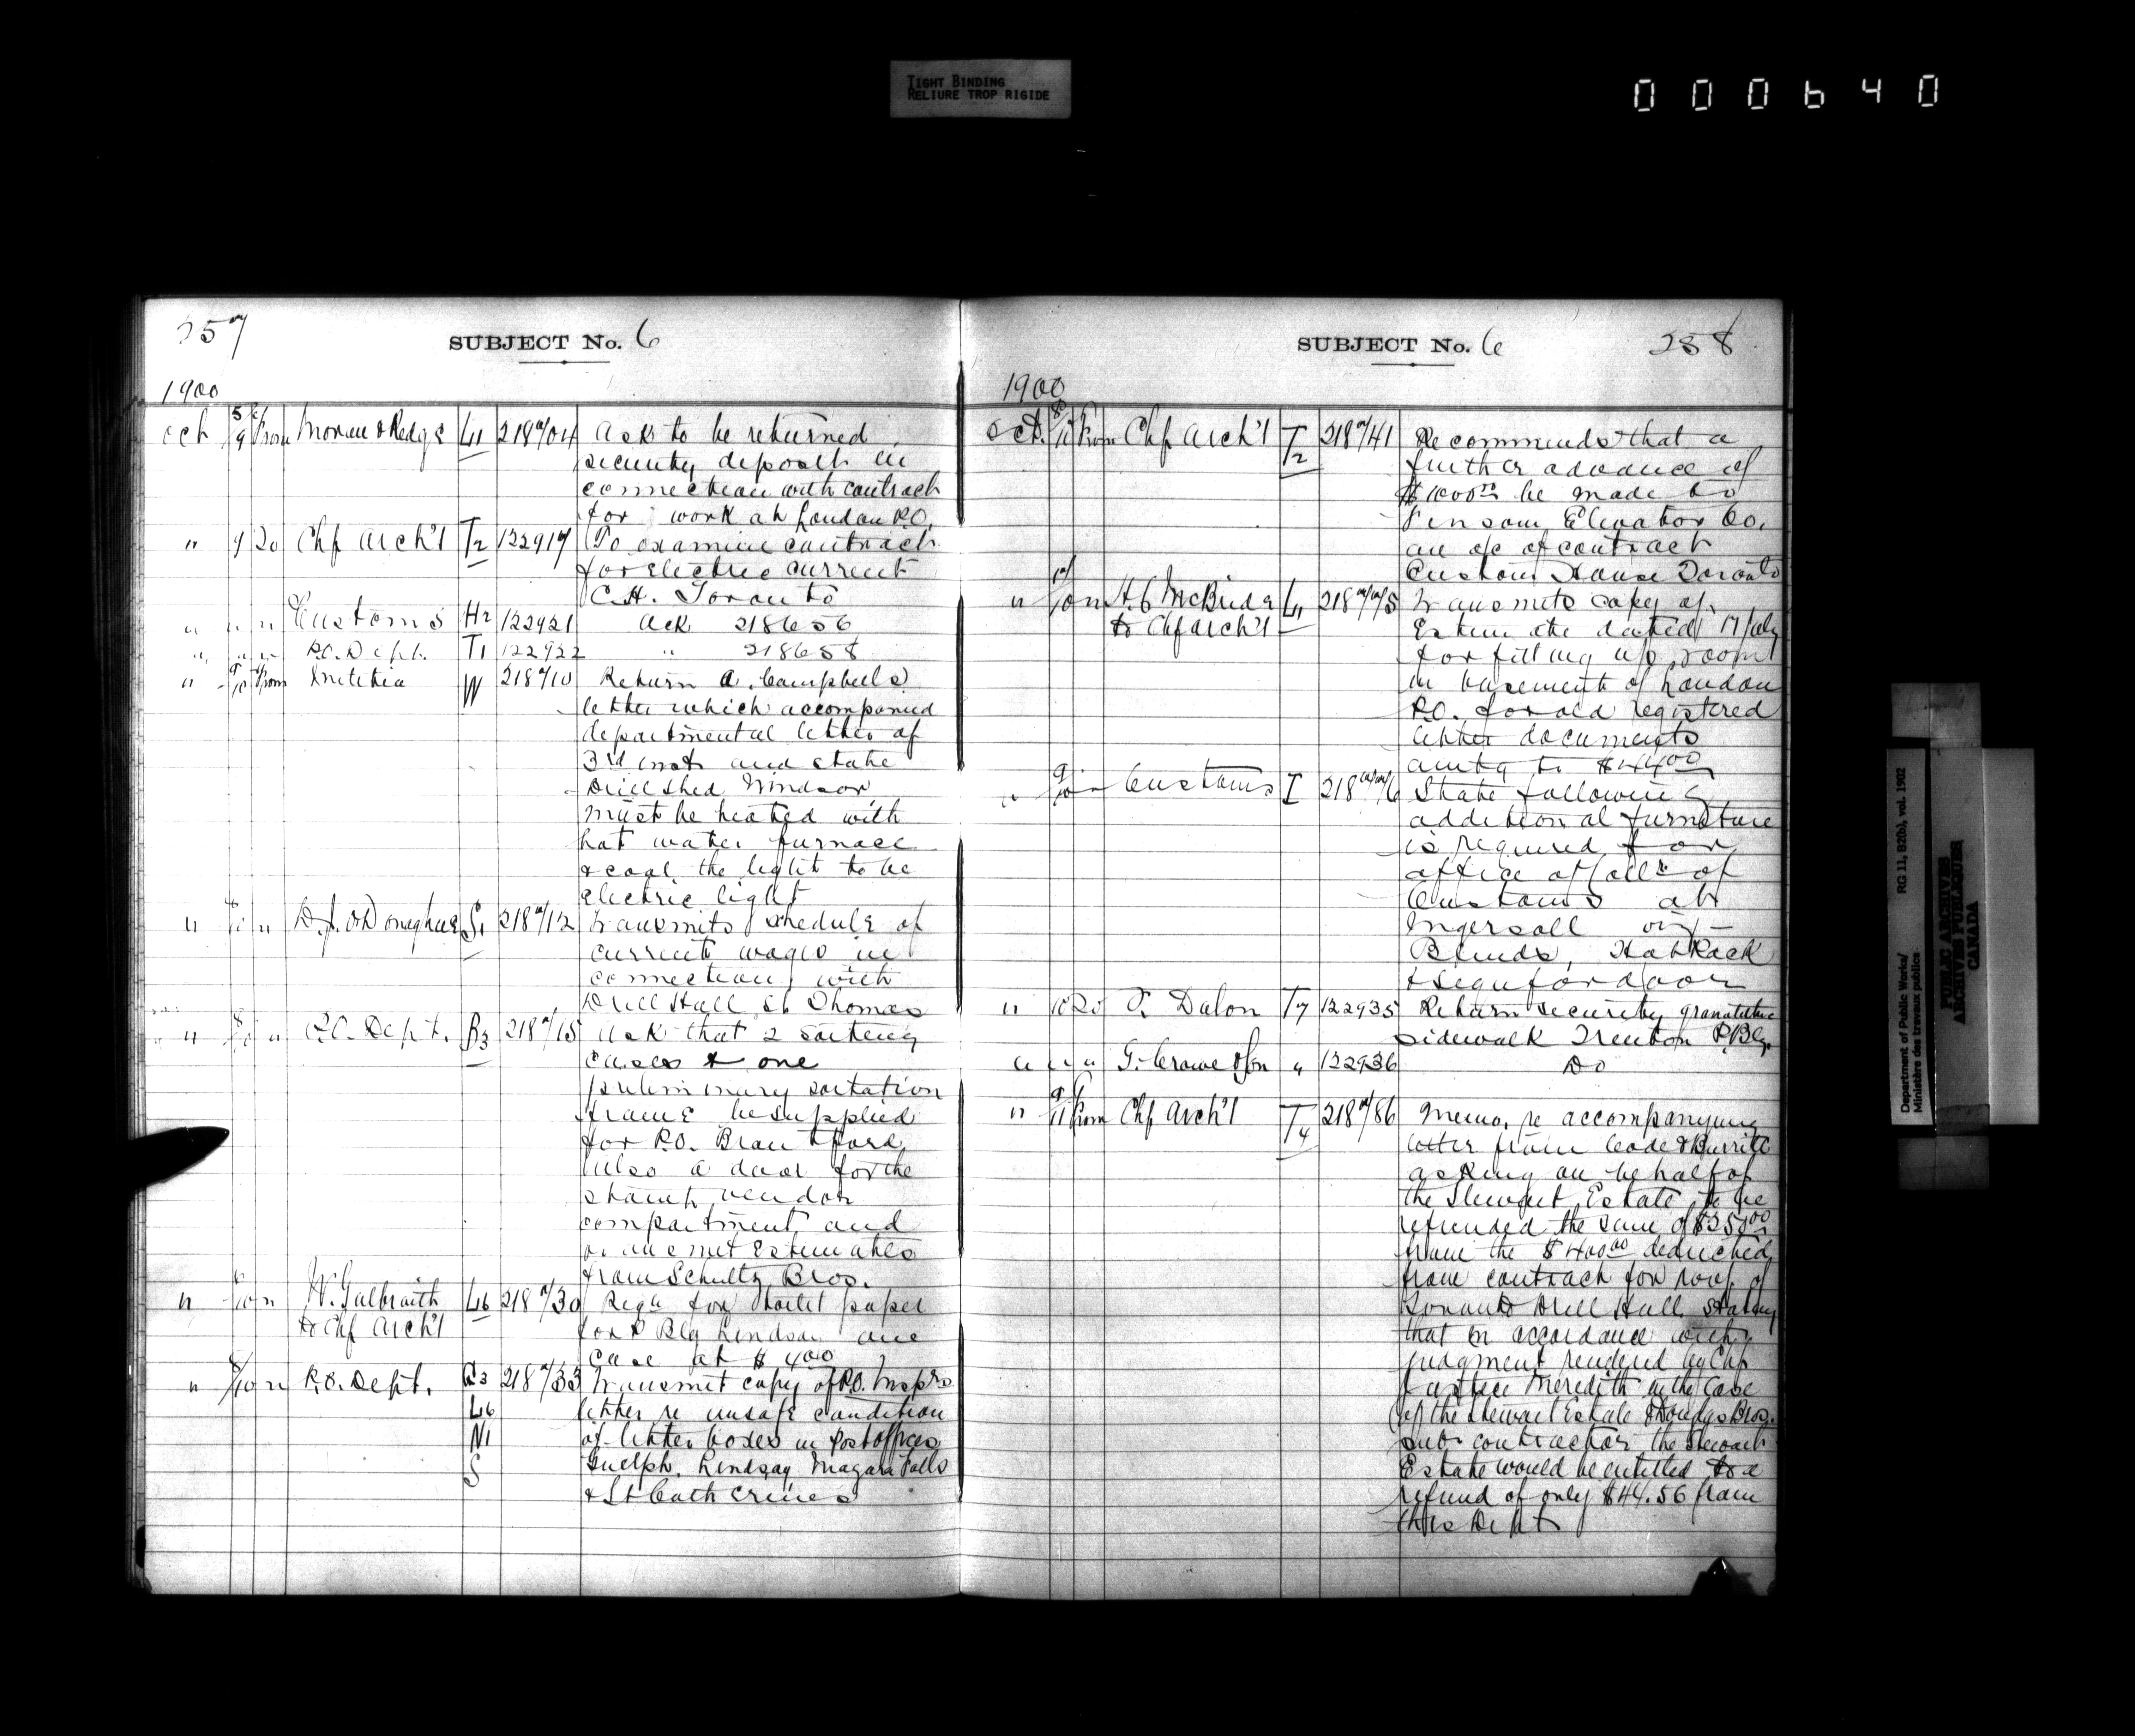 TIGHT BINDING
RELIURE TROP RIGIDE
000640
257
SUBJECT No. 6
1900
Oct 5/9 From Moreau & Redge L1 218704 Ask to be returned
security deposit in
connection with contract
for work at London P.O.
" 9 To Chf Arch't T2 122917 To examine contract
for electric current
C.H. Toronto
" " " Customs H2 122921 Ack 218656
" " " P.O. Dept. T1 122922 " 218658
" 9/10 From Militia W 218710 Return A. Campbell's
letter which accompanied
departmental letter of
3rd inst and state
Drill Shed Windsor
must be heated with
hot water furnace
& coal the light to be
electric light
" " D.J. O'Donaghue S1 218712 Transmits schedule of
current wages in
connection with
Drill Hall St Thomas
" " P.O. Dept. B3 218715 Ask that 2 sorting
cases & one
preliminary sortation
frame be supplied
for P.O. Brantford
also a door for the
stamp vendor
compartment and
transmit Estimates
from Schultz Bros.
" /10 " W. Galbraith L6 218730 Requ for toilet paper
to Chf Arch't for P Blg Lindsay one
case at $4.00
" 8/10 " P.O. Dept. G3 218733 Transmit copy of P.O. Insprs
L6 letter re unsafe condition
N1 of letter boxes in Postoffices
S Guelph, Lindsay Niagara Falls
& St Catherines
SUBJECT No. 6
258
1900
Oct. 8/11 From Chf Arch't T2 218741 Recommends that a
further advance of
$1000.00 be made to
Fensom Elevator Co.
on a/c of contract
Custom House Toronto
" /10 " H.C McBride L1 218775 Transmits copy of
to Chf Arch't Estimate dated 17 July
for fitting up room
in basement of London
P.O. for old registered
letter documents
amtg to $44.00
" 9/10 " Customs I 218776 State following
additional furniture
is required for
office of Collr of
Customs at
Ingersoll viz —
Blinds, Hat Rack
& sign for door
" 10 To T. Dalon T7 122935 Return security granolithic
sidewalk Trenton P. Blg.
" " " G. Crowe & Son " 122936 Do
" 9/11 From Chf Arch't T4 218786 Memo. re accompanying
letter from Code & Burritt
asking on behalf of
the Stewart Estate to be
refunded the sum of $350.00
from the $400.00 deducted
from contract for roof of
Toronto Drill Hall, stating
that in accordance with
judgment rendered by Chf
Justice Meredith in the case
of the Stewart Estate & Douglas Bros.
sub contractors the Stewart
Estate would be entitled to a
refund of only $44.56 from
this Dept
Department of Public Works/
Ministère des travaux publics
RG 11, B2(b), vol. 1902
PUBLIC ARCHIVES
ARCHIVES PUBLIQUES
CANADA